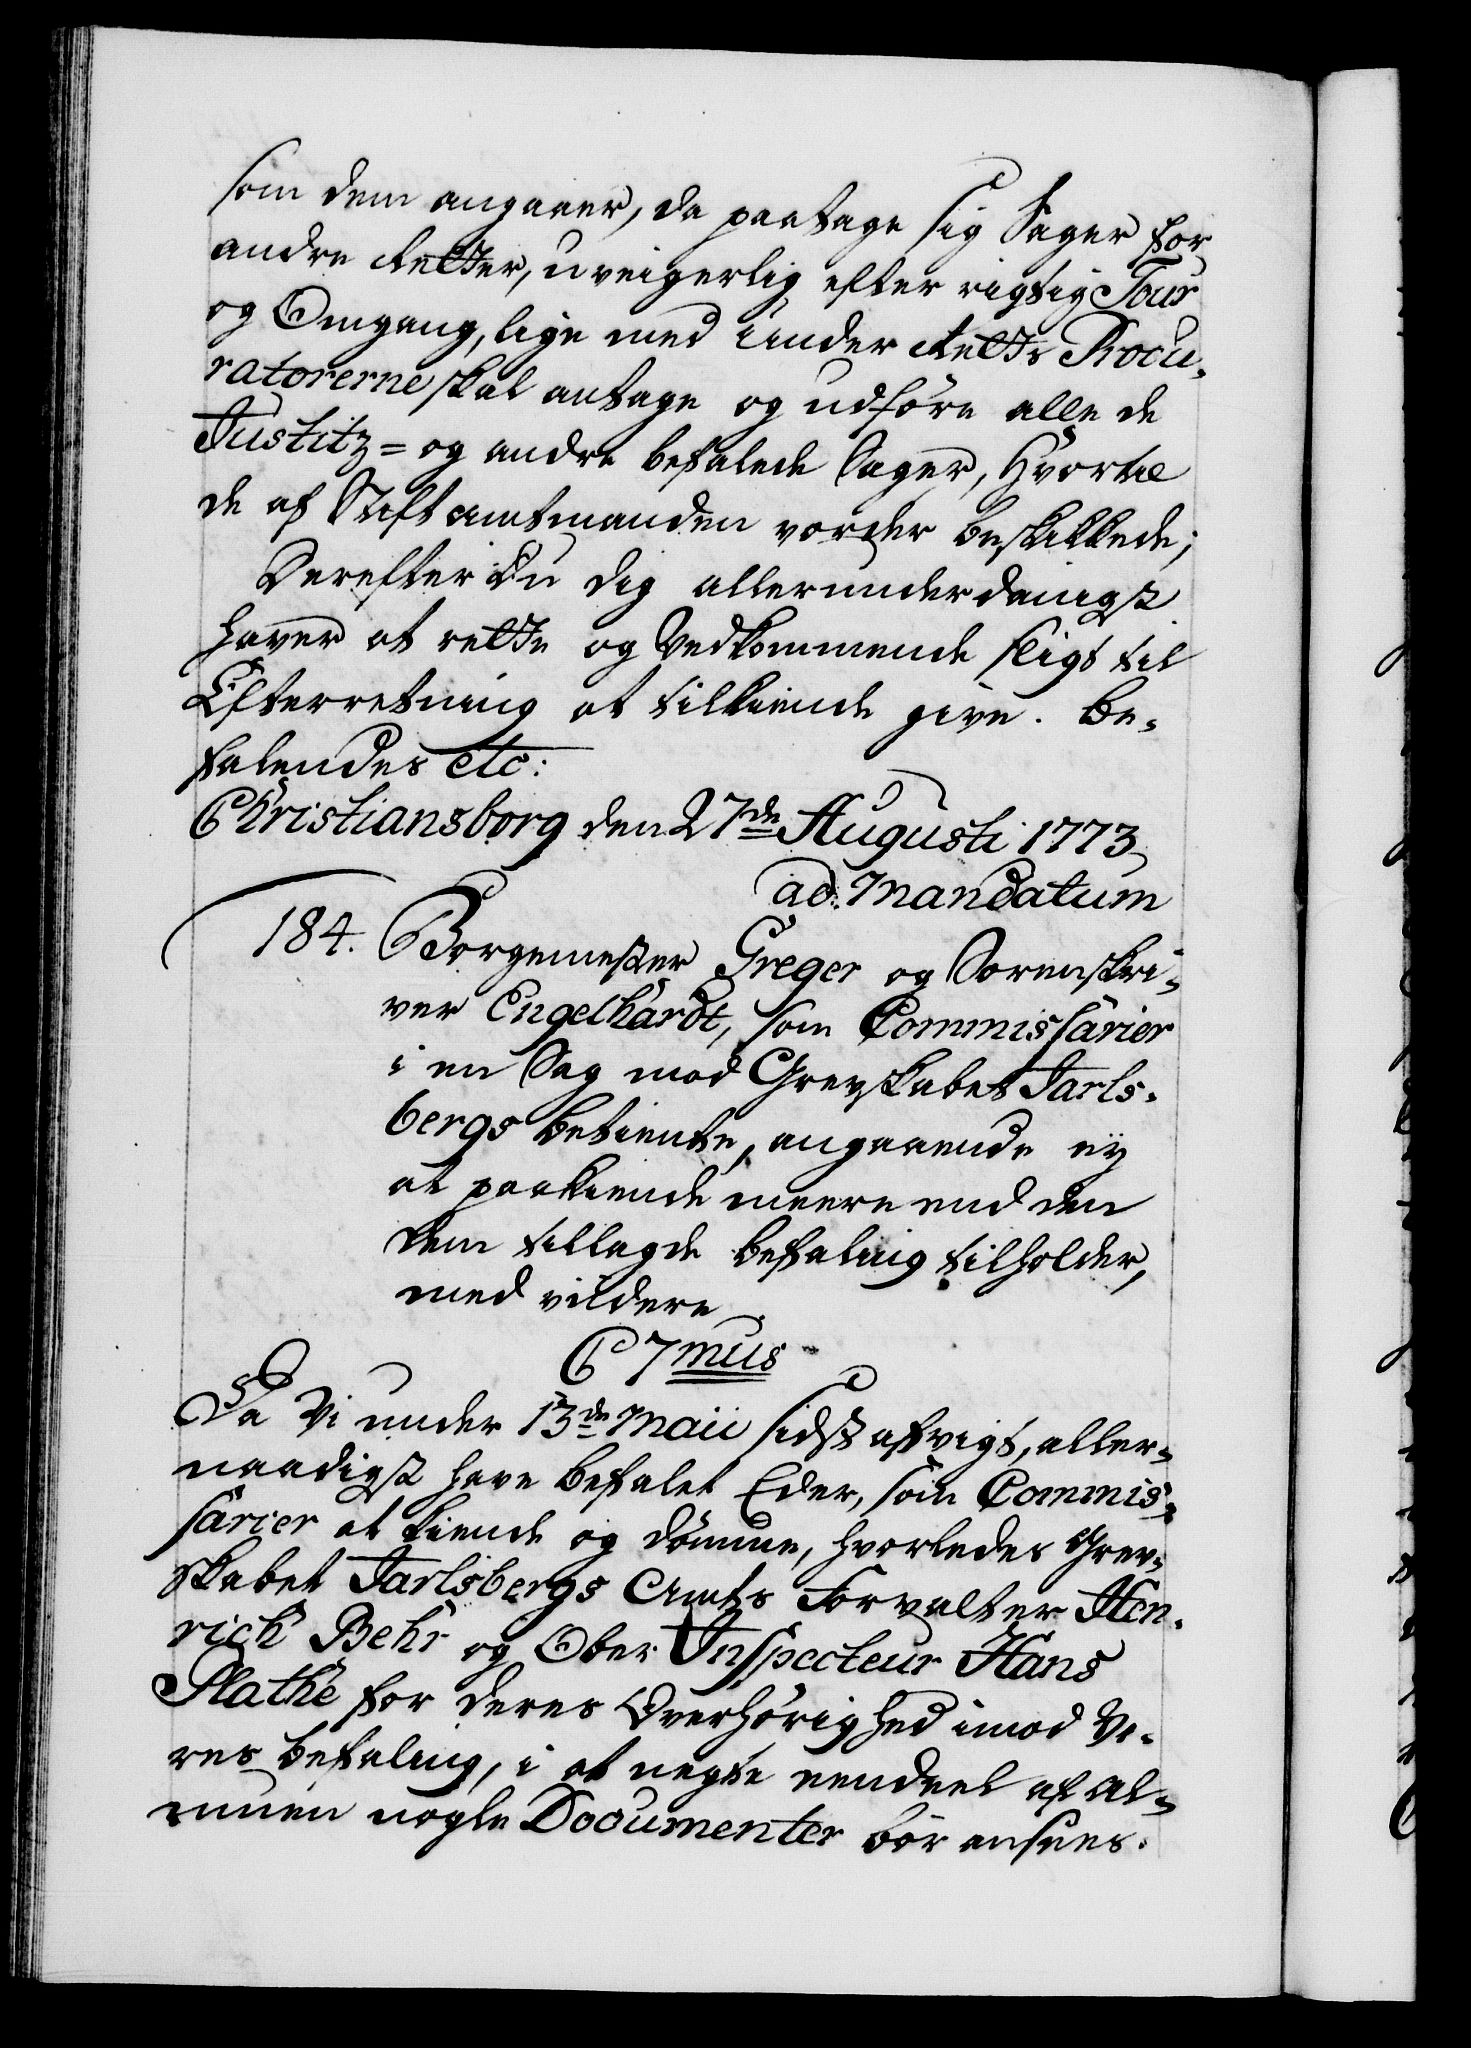 som dem angaaer, da paatage sig Sager for
andre Retter, uveigerlig efter rigtig Tour
og Omgang, lige med Under Retts Procu-
ratorerne skal antage og udføre alle de
Justitz= og andre befalede Sager, hvortil
de af Stiftamtmanden vorder beskikkede;
Derefter Du dig allerunderdanigst
haver at rette og Vedkommende sligt til
Efterretning at tilkiende give. Be-
falendes etc:
Christiansborg den 27de Augusti 1773
ad Mandatum
184. Borgemester Greger og Sorenskri-
ver Engelhardt, som Commissarier
i en Sag mod Grevskabet Jarls-
bergs betiente, angaaende ey
at paakiende meere end den
dem tillagde befaling tilholder,
med videre
C 7mus
Da Vi under 13de Maii sidst afvigt, aller-
naadigst have befalet Eder, som Commis-
sarier at kiende og dømme, hvorledes Grev-
skabet Jarlsbergs Amts Forvalter Hen-
rich Behr og Ober Inspecteur Hans
Plathe for deres Overhørighed imod Vo-
res befaling, i at negte eendeel af Al-
muen nogle Documenter bør ansees.